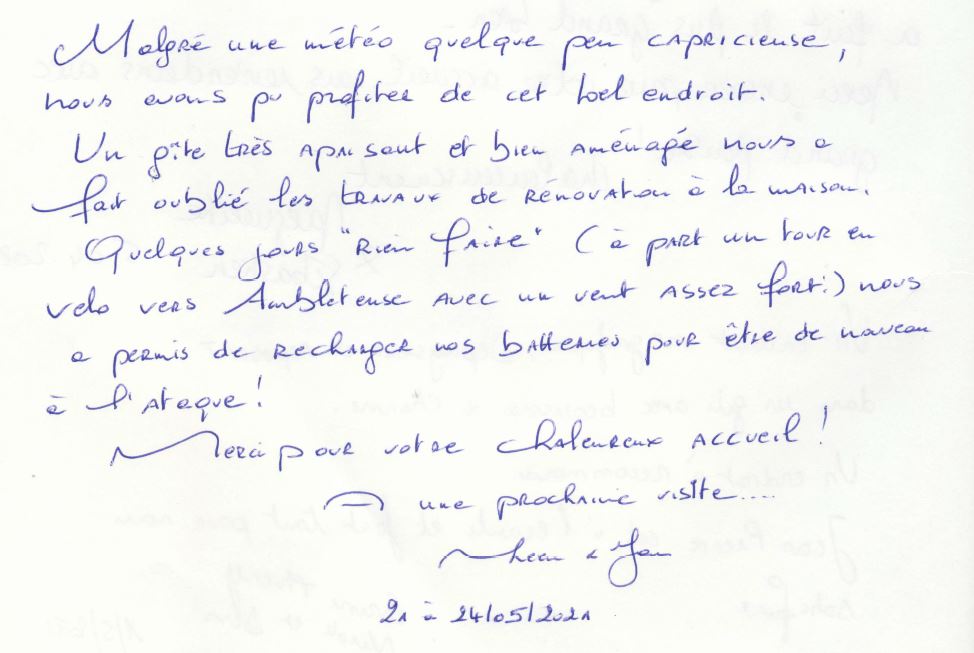 Malgré une météo quelque peu CAPRICIEUSE,
nous avons pu profiter de cet bel endroit.
Un gîte très apaisant et bien AMÉNAGÉ nous a
fait oublié les TRAVAUX de RÉNOVATION à la MAISON.
Quelques jours "Rien faire" (à part un tour en
velo vers Ambleteuse AVEC un vent ASSEZ fort!) nous
a permis de RECHARGER nos batteries pour être de nouveau
à l'ataque!
Merci pour votre chaleureux ACCUEIL!
A une prochaine visite....
& Jan
21 à 24/05/2021